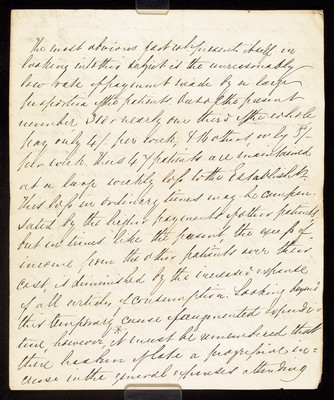 The most obvious fact wh presents itself in
looking into this subject is the unreasonably
low rate of payment made by a large
proportion of the patients. Out of the present
number 31 or nearly one third of the whole
pay only 4/- per week, & 16 others, only 8/-
per week. Thus 47 patients are maintained
at a large weekly loss to the Establisht.
This loss in ordinary times may be compen-
sated by the higher payments of other patients,
but in times like the present the excess of
income from the other patients over their
cost, is diminished by the increased expense
of all articles of consumption. Looking beyond
this temporary cause of augmented expendi-
ture, however, it must be remembered that
there has been of late a progressive in-
crease in the general expenses attending